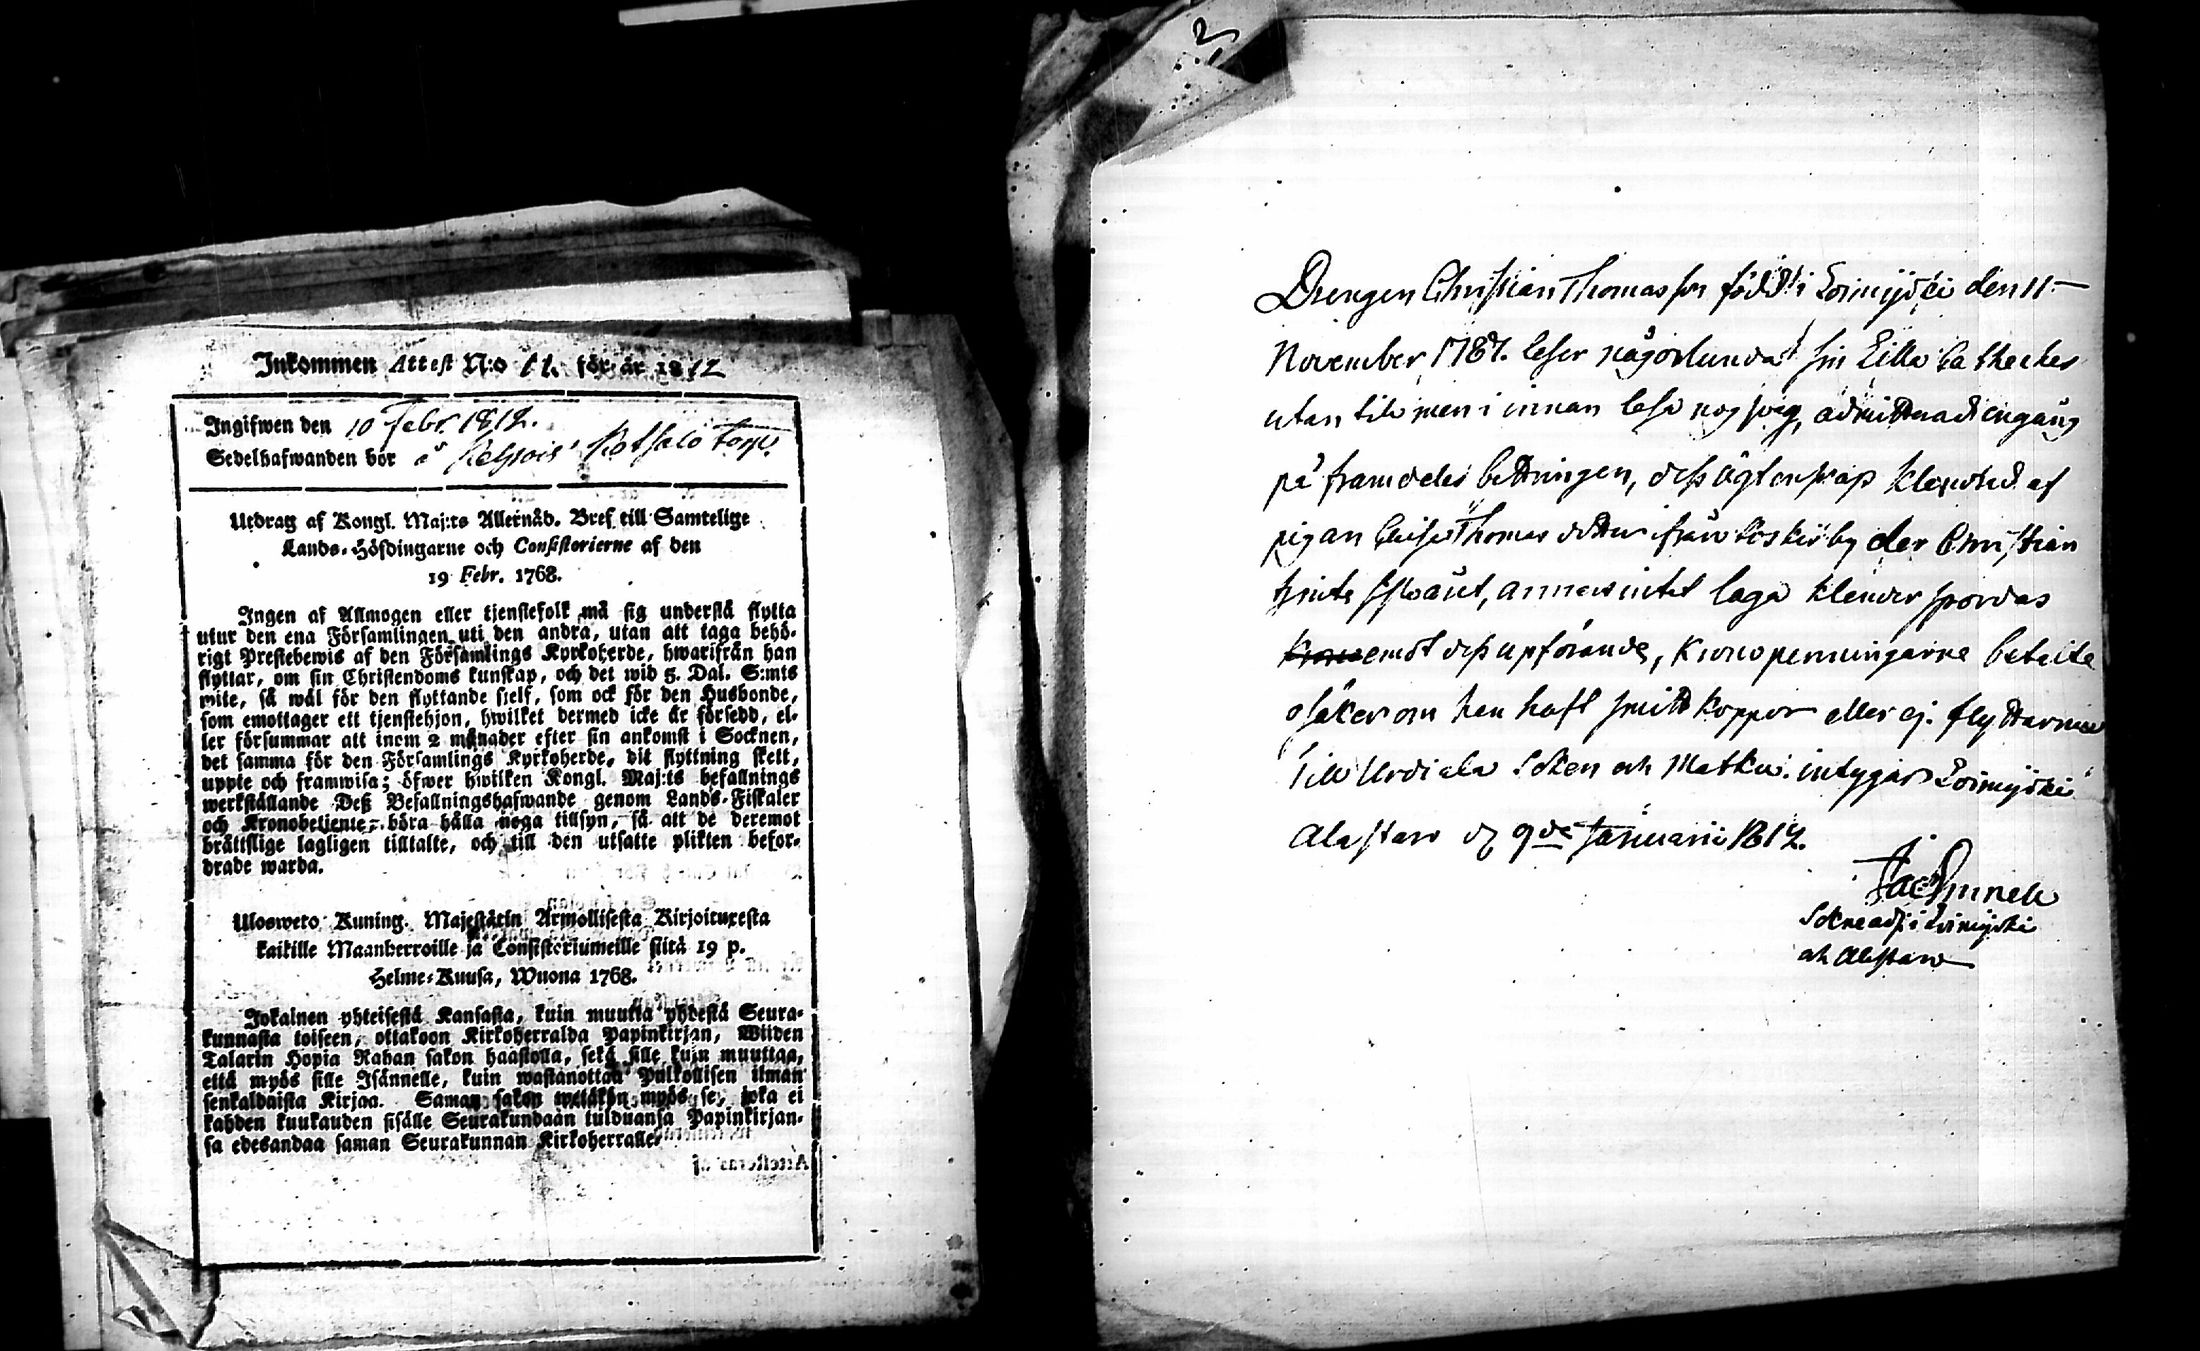 Inkommen Attest N:o 11. för år 1812
Ingifwen den 10 Febr. 1812.
Sedelhafwanden bor å Kehrois Torp.
Utdrag af Kongl. Maj:ts Allernåd. Bref till Samtelige
Lands-Höfdingarne och Consistorierne af den
19 Febr. 1768.
Ingen af Allmogen eller tjenstefolk må sig understå flytta
utur den ena Församlingen uti den andra, utan att taga behö-
rigt Prestebewis af den Församlings Kyrkoherde, hwarifrån han
flyttar, om sin Christendoms kunskap, och det wid 5. Dal. S:mts
wite, så wäl för den flyttande sielf, som ock för den Husbonde,
som emottager ett tjenstehjon, hwilket dermed icke är försedd, el-
ler försummar att inom 2 månader efter sin ankomst i Socknen,
det samma för den Församlings Kyrkoherde, dit flyttning skett,
uppte och framwisa; öfwer hwilken Kongl. Maj:ts befallnings
werkställande Deß Befallningshafwande genom Lands-Fiskaler
och Kronobetjente, böra hålla noga tillsyn, så att de deremot
bråttslige lagligen tilltalte, och till den utsatte plikten befor-
drade warda.
Ulosweto Kuning. Majestätin Armollisesta Kirjoituxesta
kaikille Maanherroille ja Consistoriumeille siitä 19 p.
Helme-Kuusa, Wuona 1768.
Jokainen yhteisestä Kansasta, kuin muutta yhdestä Seura-
kunnasta toiseen, ottakoon Kirkoherralda Papinkirjan, Wiiden
Talarin Hopia Rahan sakon haastolla, sekä sille kuin muuttaa,
että myös sille Isännelle, kuin wastanottaa Palkollisen ilman
senkaldaista Kirjaa. Saman sakon wetäkön myös se, joka ei
kahden kuukauden sisälle Seurakundaan tulduansa Papinkirjan-
sa edesandaa saman Seurakunnan Kirkoherralle.
2
Drengen Christian Thomasson född i Loimijoki den 11
November 1787. leser någorlunda sin Lilla Catheches
utan till men i innan lesa nog svag, admitterad engång
på framdeles bettringen, dess ägtenskap klandrad af
pigan Thomas dotter ifrån by der Christian
sist, annars intet laga klander spordas
emot dess upförande, Kronopenningarne betalte
osäker om han haft smittkoppor eller ej. flyttar nu
till Urdiala Soken och Matku. intygar Loimijoki
Alastaro d 9de Januarii 1812.
Sokneadj: i Loimijoki
och Alastaro